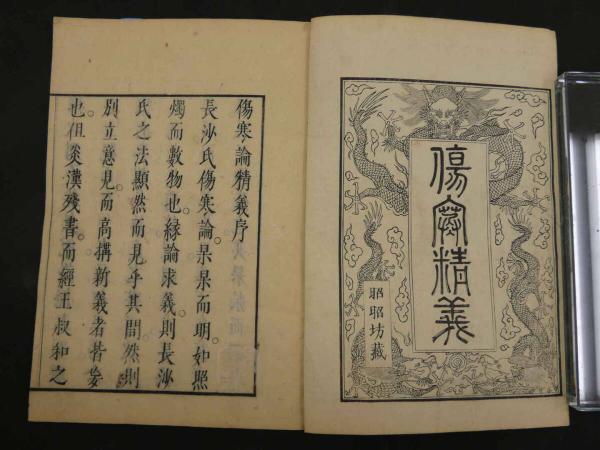 傷寒精義
昭昭坊藏
傷寒論精義序
長沙氏傷寒論杲杲而明如照
燭而數物也緣論求義則長沙
氏之法顯然而見乎其間然則
別立意見而高搆新義者皆妄
也但炎漢殘書而經王叔和之